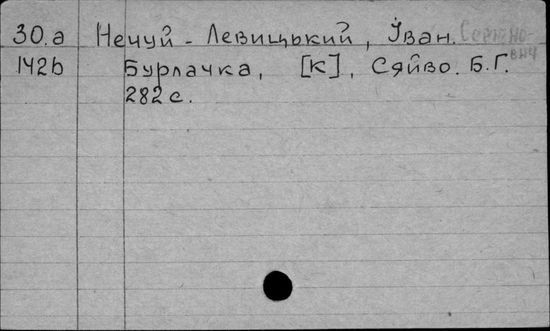 30.а Нечуй - Левицький, Іван.
142b Бурлачка, [К], Сяйво. Б.Г.
282 с.